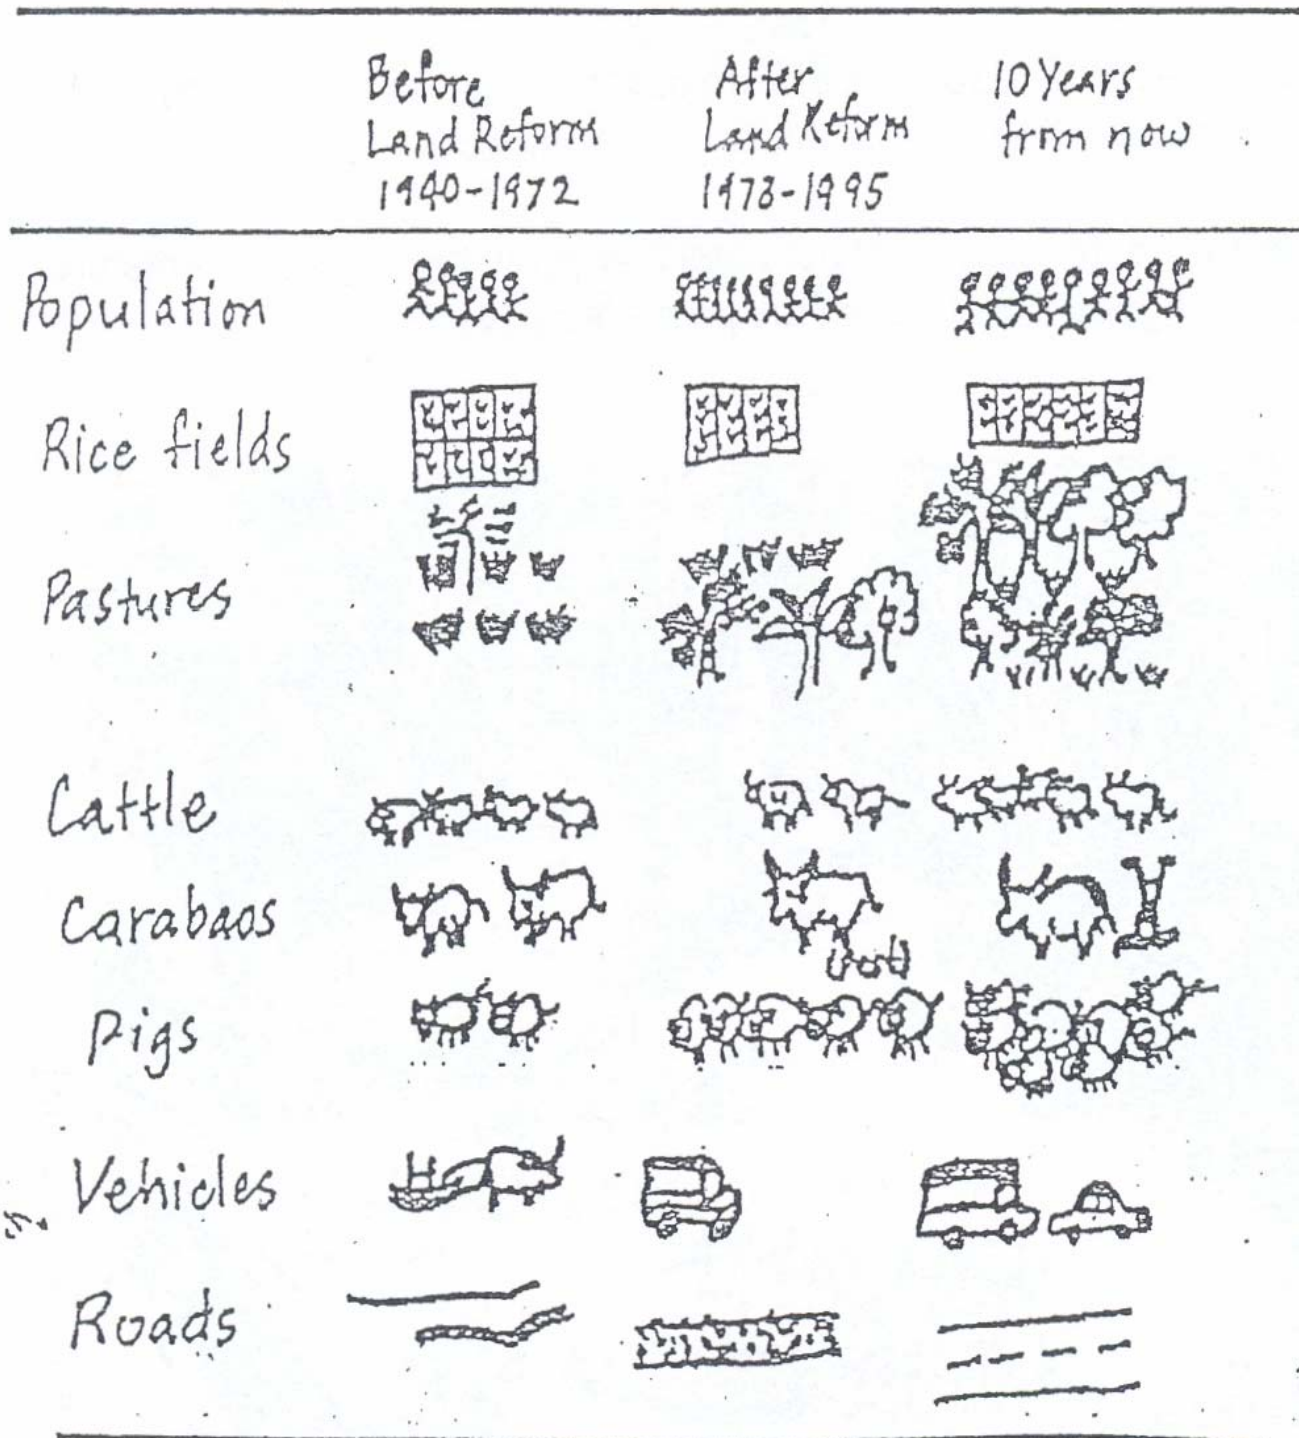 Before
Land Reform
1940-1972
After
Land Reform
1973-1995
10 Years
from now
Population
Rice fields
Pastures
Cattle
Carabaos
Pigs
Vehicles
Roads